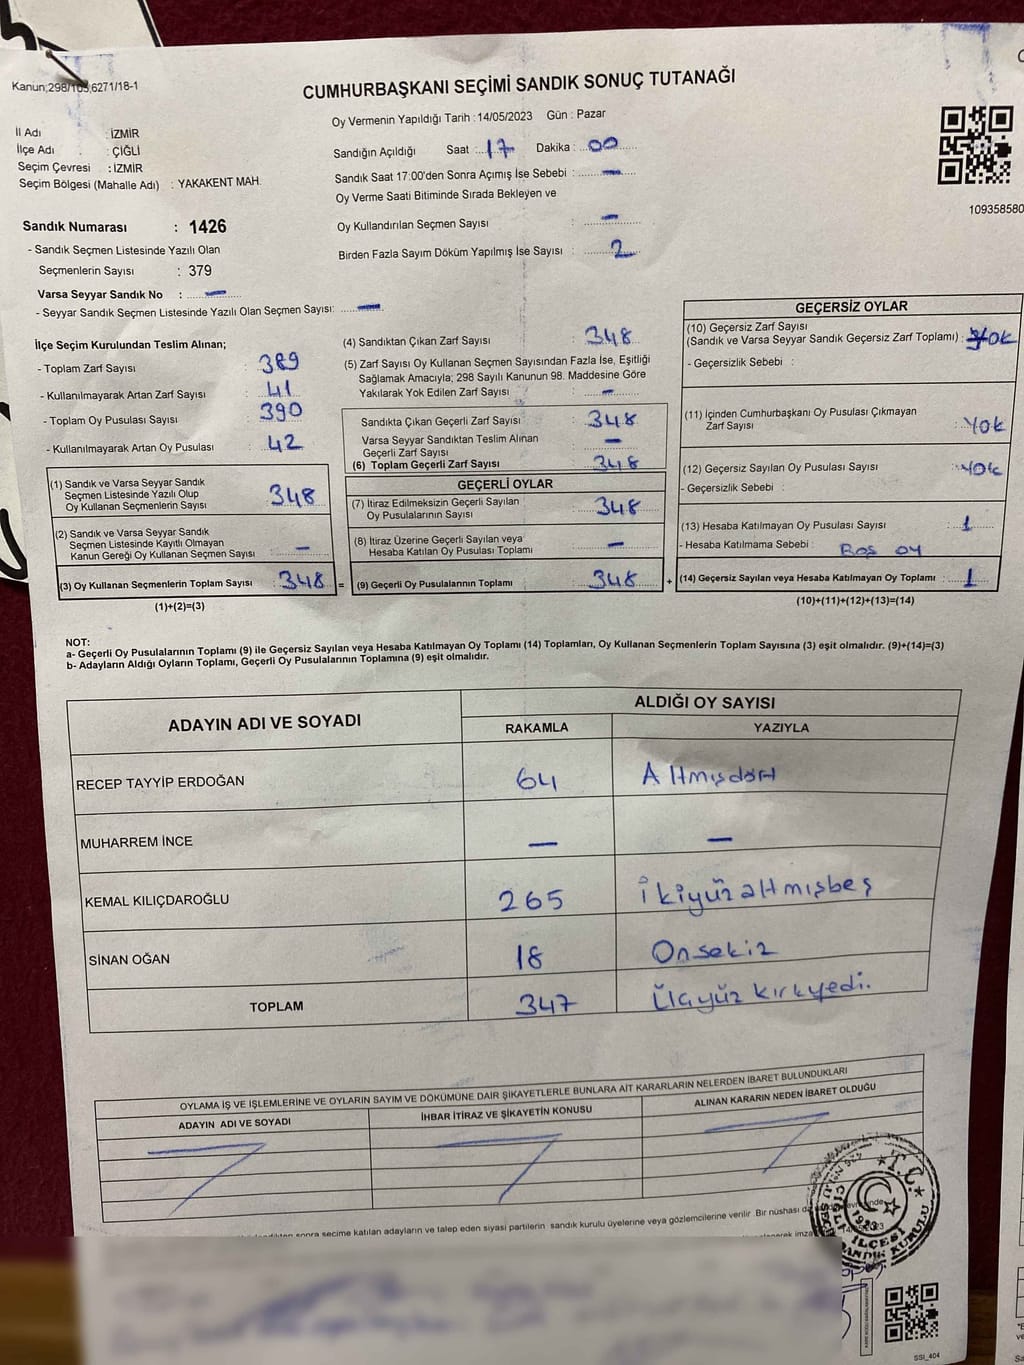 Kanun;298/103,6271/18-1
CUMHURBAŞKANI SEÇİMİ SANDIK SONUÇ TUTANAĞI
İl Adı : İZMİR
İlçe Adı : ÇİĞLİ
Seçim Çevresi : İZMİR
Seçim Bölgesi (Mahalle Adı) : YAKAKENT MAH.
Oy Vermenin Yapıldığı Tarih : 14/05/2023 Gün : Pazar
Sandığın Açıldığı Saat : 17 Dakika : 00
Sandık Saat 17:00'den Sonra Açımış İse Sebebi : —
Oy Verme Saati Bitiminde Sırada Bekleyen ve
Oy Kullandırılan Seçmen Sayısı : —
Birden Fazla Sayım Döküm Yapılmış İse Sayısı : 2
109358580
Sandık Numarası : 1426
- Sandık Seçmen Listesinde Yazılı Olan
Seçmenlerin Sayısı : 379
Varsa Seyyar Sandık No : —
- Seyyar Sandık Seçmen Listesinde Yazılı Olan Seçmen Sayısı: —
İlçe Seçim Kurulundan Teslim Alınan;
- Toplam Zarf Sayısı : 389
- Kullanılmayarak Artan Zarf Sayısı : 41
- Toplam Oy Pusulası Sayısı : 390
- Kullanılmayarak Artan Oy Pusulası : 42
(1) Sandık ve Varsa Seyyar Sandık
Seçmen Listesinde Yazılı Olup
Oy Kullanan Seçmenlerin Sayısı 348
(2) Sandık ve Varsa Seyyar Sandık
Seçmen Listesinde Kayıtlı Olmayan
Kanun Gereği Oy Kullanan Seçmen Sayısı —
(3) Oy Kullanan Seçmenlerin Toplam Sayısı 348 =
(1)+(2)=(3)
(4) Sandıktan Çıkan Zarf Sayısı : 348
(5) Zarf Sayısı Oy Kullanan Seçmen Sayısından Fazla İse, Eşitliği
Sağlamak Amacıyla; 298 Sayılı Kanunun 98. Maddesine Göre
Yakılarak Yok Edilen Zarf Sayısı : —
Sandıkta Çıkan Geçerli Zarf Sayısı : 348
Varsa Seyyar Sandıktan Teslim Alınan
Geçerli Zarf Sayısı : —
(6) Toplam Geçerli Zarf Sayısı : 348
GEÇERLİ OYLAR
(7) İtiraz Edilmeksizin Geçerli Sayılan
Oy Pusulalarının Sayısı 348
(8) İtiraz Üzerine Geçerli Sayılan veya
Hesaba Katılan Oy Pusulası Toplamı —
(9) Geçerli Oy Pusulalarının Toplamı 348 +
GEÇERSİZ OYLAR
(10) Geçersiz Zarf Sayısı
(Sandık ve Varsa Seyyar Sandık Geçersiz Zarf Toplamı) : Yok
- Geçersizlik Sebebi :
(11) İçinden Cumhurbaşkanı Oy Pusulası Çıkmayan
Zarf Sayısı : Yok
(12) Geçersiz Sayılan Oy Pusulası Sayısı : Yok
- Geçersizlik Sebebi :
(13) Hesaba Katılmayan Oy Pusulası Sayısı : 1
- Hesaba Katılmama Sebebi : Boş oy
(14) Geçersiz Sayılan veya Hesaba Katılmayan Oy Toplamı : 1
(10)+(11)+(12)+(13)=(14)
NOT:
a- Geçerli Oy Pusulalarının Toplamı (9) ile Geçersiz Sayılan veya Hesaba Katılmayan Oy Toplamı (14) Toplamları, Oy Kullanan Seçmenlerin Toplam Sayısına (3) eşit olmalıdır. (9)+(14)=(3)
b- Adayların Aldığı Oyların Toplamı, Geçerli Oy Pusulalarının Toplamına (9) eşit olmalıdır.
ADAYIN ADI VE SOYADI ALDIĞI OY SAYISI
RAKAMLA YAZIYLA
RECEP TAYYİP ERDOĞAN 64 Altmışdört
MUHARREM İNCE — —
KEMAL KILIÇDAROĞLU 265 İkiyüzaltmışbeş
SİNAN OĞAN 18 Onsekiz
TOPLAM 347 Üçyüz kırkyedi.
OYLAMA İŞ VE İŞLEMLERİNE VE OYLARIN SAYIM VE DÖKÜMÜNE DAİR ŞİKAYETLERLE BUNLARA AİT KARARLARIN NELERDEN İBARET BULUNDUKLARI
ADAYIN ADI VE SOYADI İHBAR İTİRAZ VE ŞİKAYETİN KONUSU ALINAN KARARIN NEDEN İBARET OLDUĞU
sonra seçime katılan adayların ve talep eden siyasi partilerin sandık kurulu üyelerine veya gözlemcilerine verilir. Bir nüshası
T.C.
ÇİĞLİ
İLÇESİ
SANDIK KURULU
SSİ_404